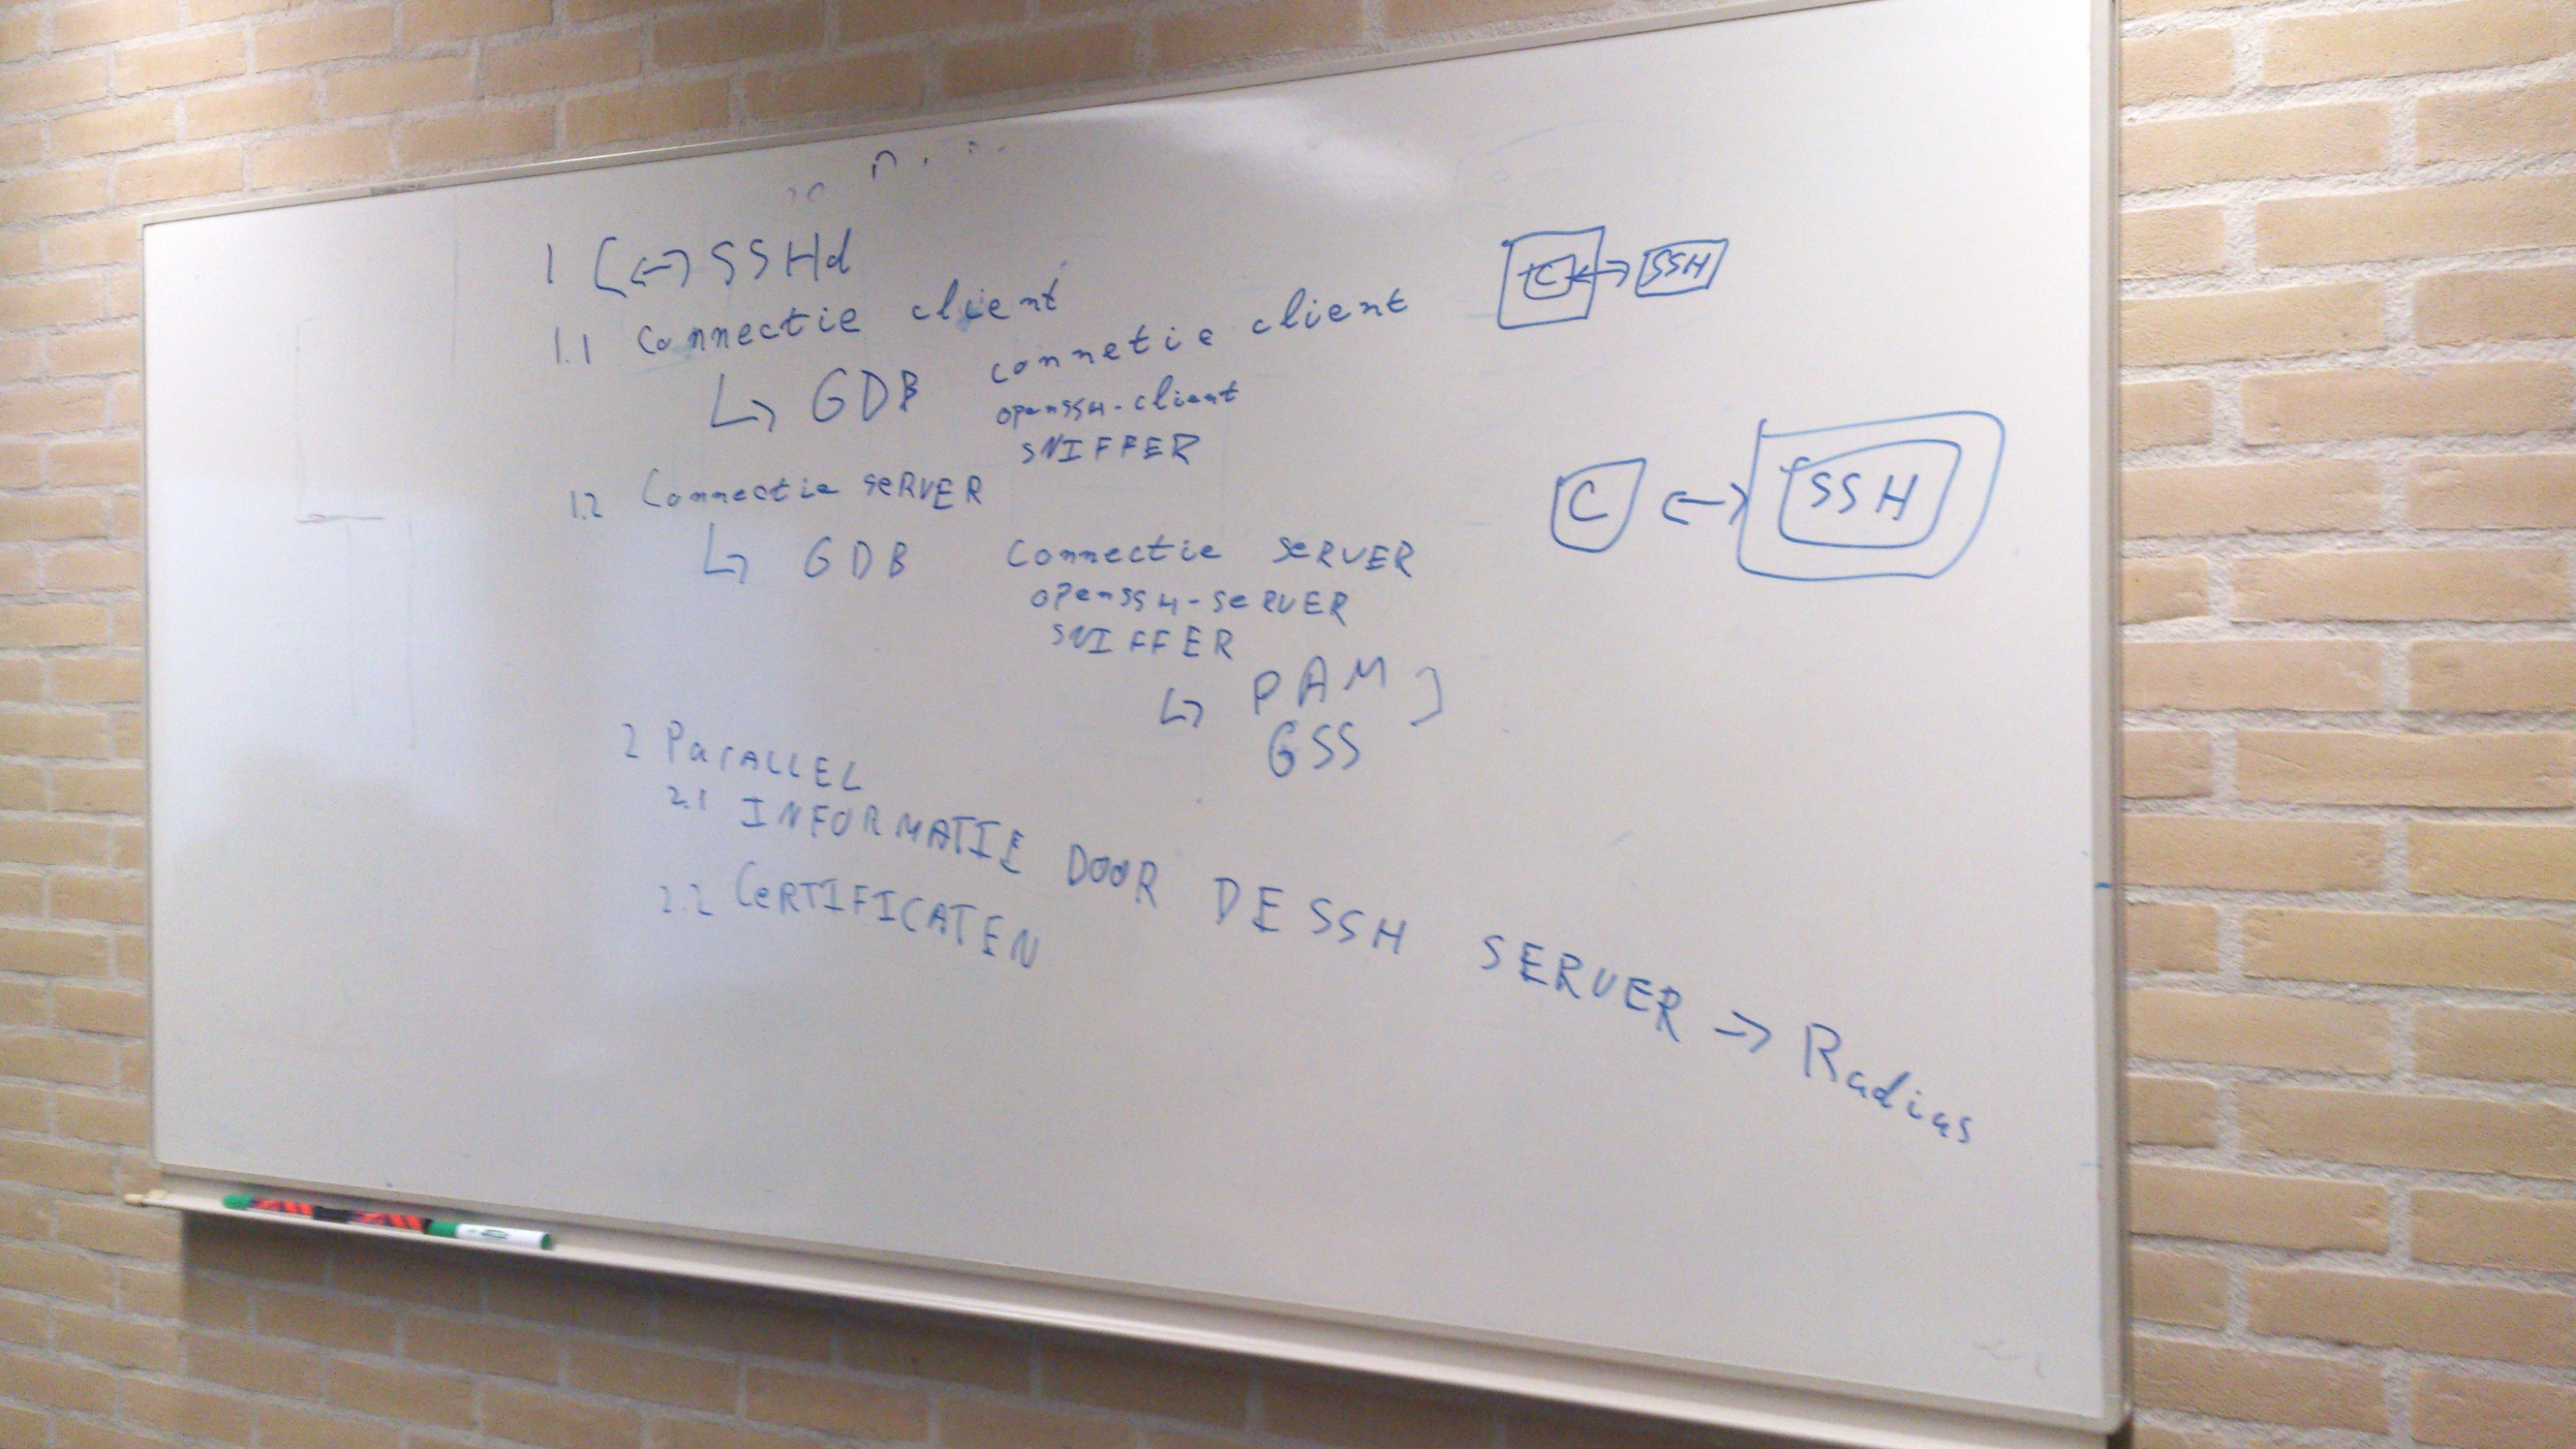 1 C ↔ SSHd
1.1 Connectie client
↳ GDB connetie client
openSSH-client
SNIFFER
1.2 Connectie SeRVER
↳ GDB Connectie SeRVER
openSSH-SeRVER
SNIFFER
↳ PAM ]
GSS
2 PArALLEL
2.1 INFORMATIE DOOR DE SSH SERVER → Radius
2.2 CeRTIFICATEN
C ↔ SSH
C ↔ SSH